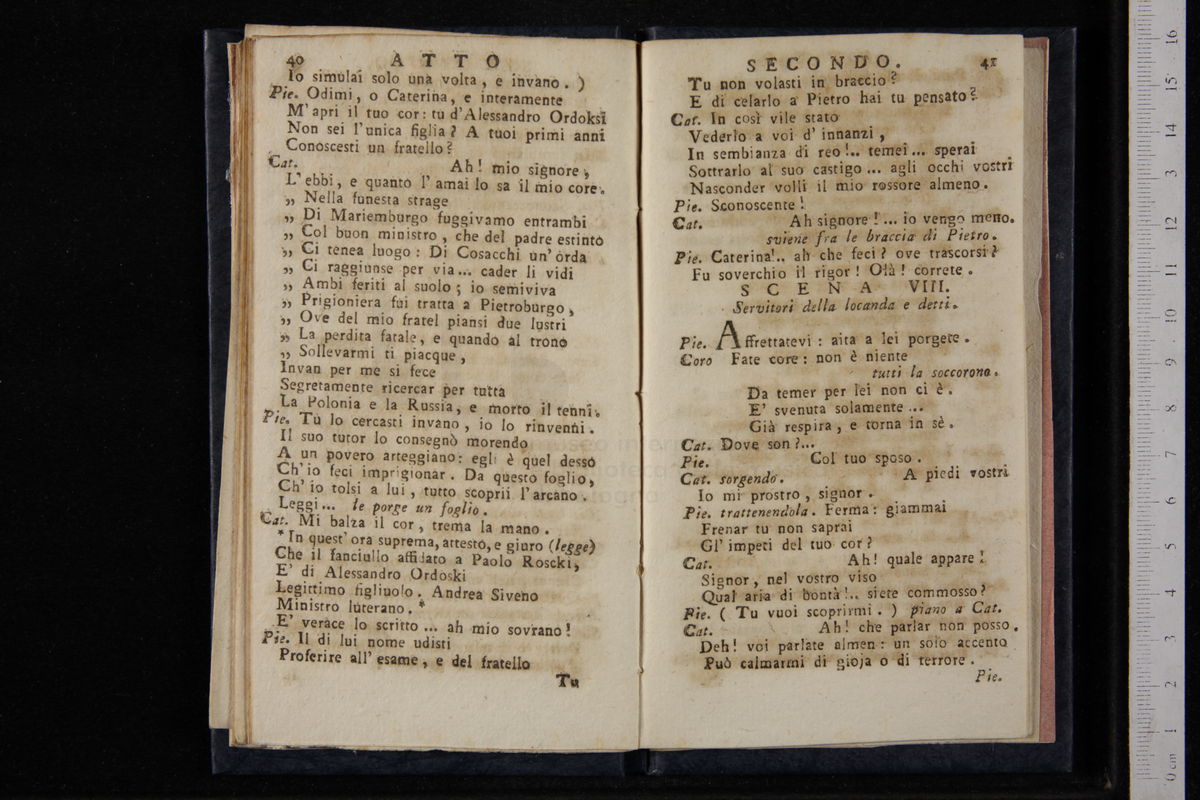 40 ATTO
Io simulai solo una volta , e invano . )
Pie. Odimi , o Caterina , e interamente
M' apri il tuo cor : tu d'Alessandro Ordoksi
Non sei l'unica figlia ? A tuoi primi anni
Conoscesti un fratello ?
Cat. Ah ! mio signore ,
L' ebbi , e quanto l' amai lo sa il mio core .
„ Nella funesta strage
„ Di Mariemburgo fuggivamo entrambi
„ Col buon ministro , che del padre estinto
„ Ci tenea luogo : Di Cosacchi un' orda
„ Ci raggiunse per via ... cader li vidi
„ Ambi feriti al suolo ; io semiviva
„ Prigioniera fui tratta a Pietroburgo ,
„ Ove del mio fratel piansi due lustri
„ La perdita fatale , e quando al trono
„ Sollevarmi ti piacque ,
Invan per me si fece
Segretamente ricercar per tutta
La Polonia e la Russia , e morto il tenni .
Pie. Tu lo cercasti invano , io lo rinvenni .
Il suo tutor lo consegnò morendo
A un povero arteggiano : egli è quel desso
Ch' io feci imprigionar . Da questo foglio ,
Ch' io tolsi a lui , tutto scoprii l'arcano .
Leggi ... le porge un foglio .
Cat. Mi balza il cor , trema la mano .
* In quest' ora suprema, attesto, e giuro (legge)
Che il fanciullo affidato a Paolo Roscki,
E' di Alessandro Ordoski
Legittimo figliuolo . Andrea Siveno
Ministro luterano . *
E' verace lo scritto ... ah mio sovrano !
Pie. Il di lui nome udisti
Proferire all' esame , e del fratello
Tu
SECONDO. 41
Tu non volasti in braccio ?
E di celarlo a Pietro hai tu pensato ?
Cat. In così vile stato
Vederlo a voi d' innanzi ,
In sembianza di reo !.. temei ... sperai
Sottrarlo al suo castigo ... agli occhi vostri
Nasconder volli il mio rossore almeno .
Pie. Sconoscente !
Cat. Ah signore ! ... io vengo meno.
sviene fra le braccia di Pietro .
Pie. Caterina !.. ah che feci ? ove trascorsi ?
Fu soverchio il rigor ! Olà ! correte .
SCENA VIII.
Servitori della locanda e detti .
Pie. Affrettatevi : aita a lei porgete .
Coro Fate core : non è niente
tutti la soccorono .
Da temer per lei non ci è .
E' svenuta solamente ...
Già respira , e torna in sè .
Cat. Dove son ?...
Pie. Col tuo sposo .
Cat. sorgendo . A piedi vostri
Io mi prostro , signor .
Pie. trattenendola . Ferma : giammai
Frenar tu non saprai
Gl' impeti del tuo cor ?
Cat. Ah ! quale appare !
Signor , nel vostro viso
Qual aria di bontà !.. siete commosso ?
Pie. ( Tu vuoi scoprirmi . ) piano a Cat.
Cat. Ah ! che parlar non posso .
Deh ! voi parlate almen : un solo accento
Può calmarmi di gioja o di terrore .
Pie.
16 15 14 13 12 11 10 9 8 7 6 5 4 3 2 1 0 cm